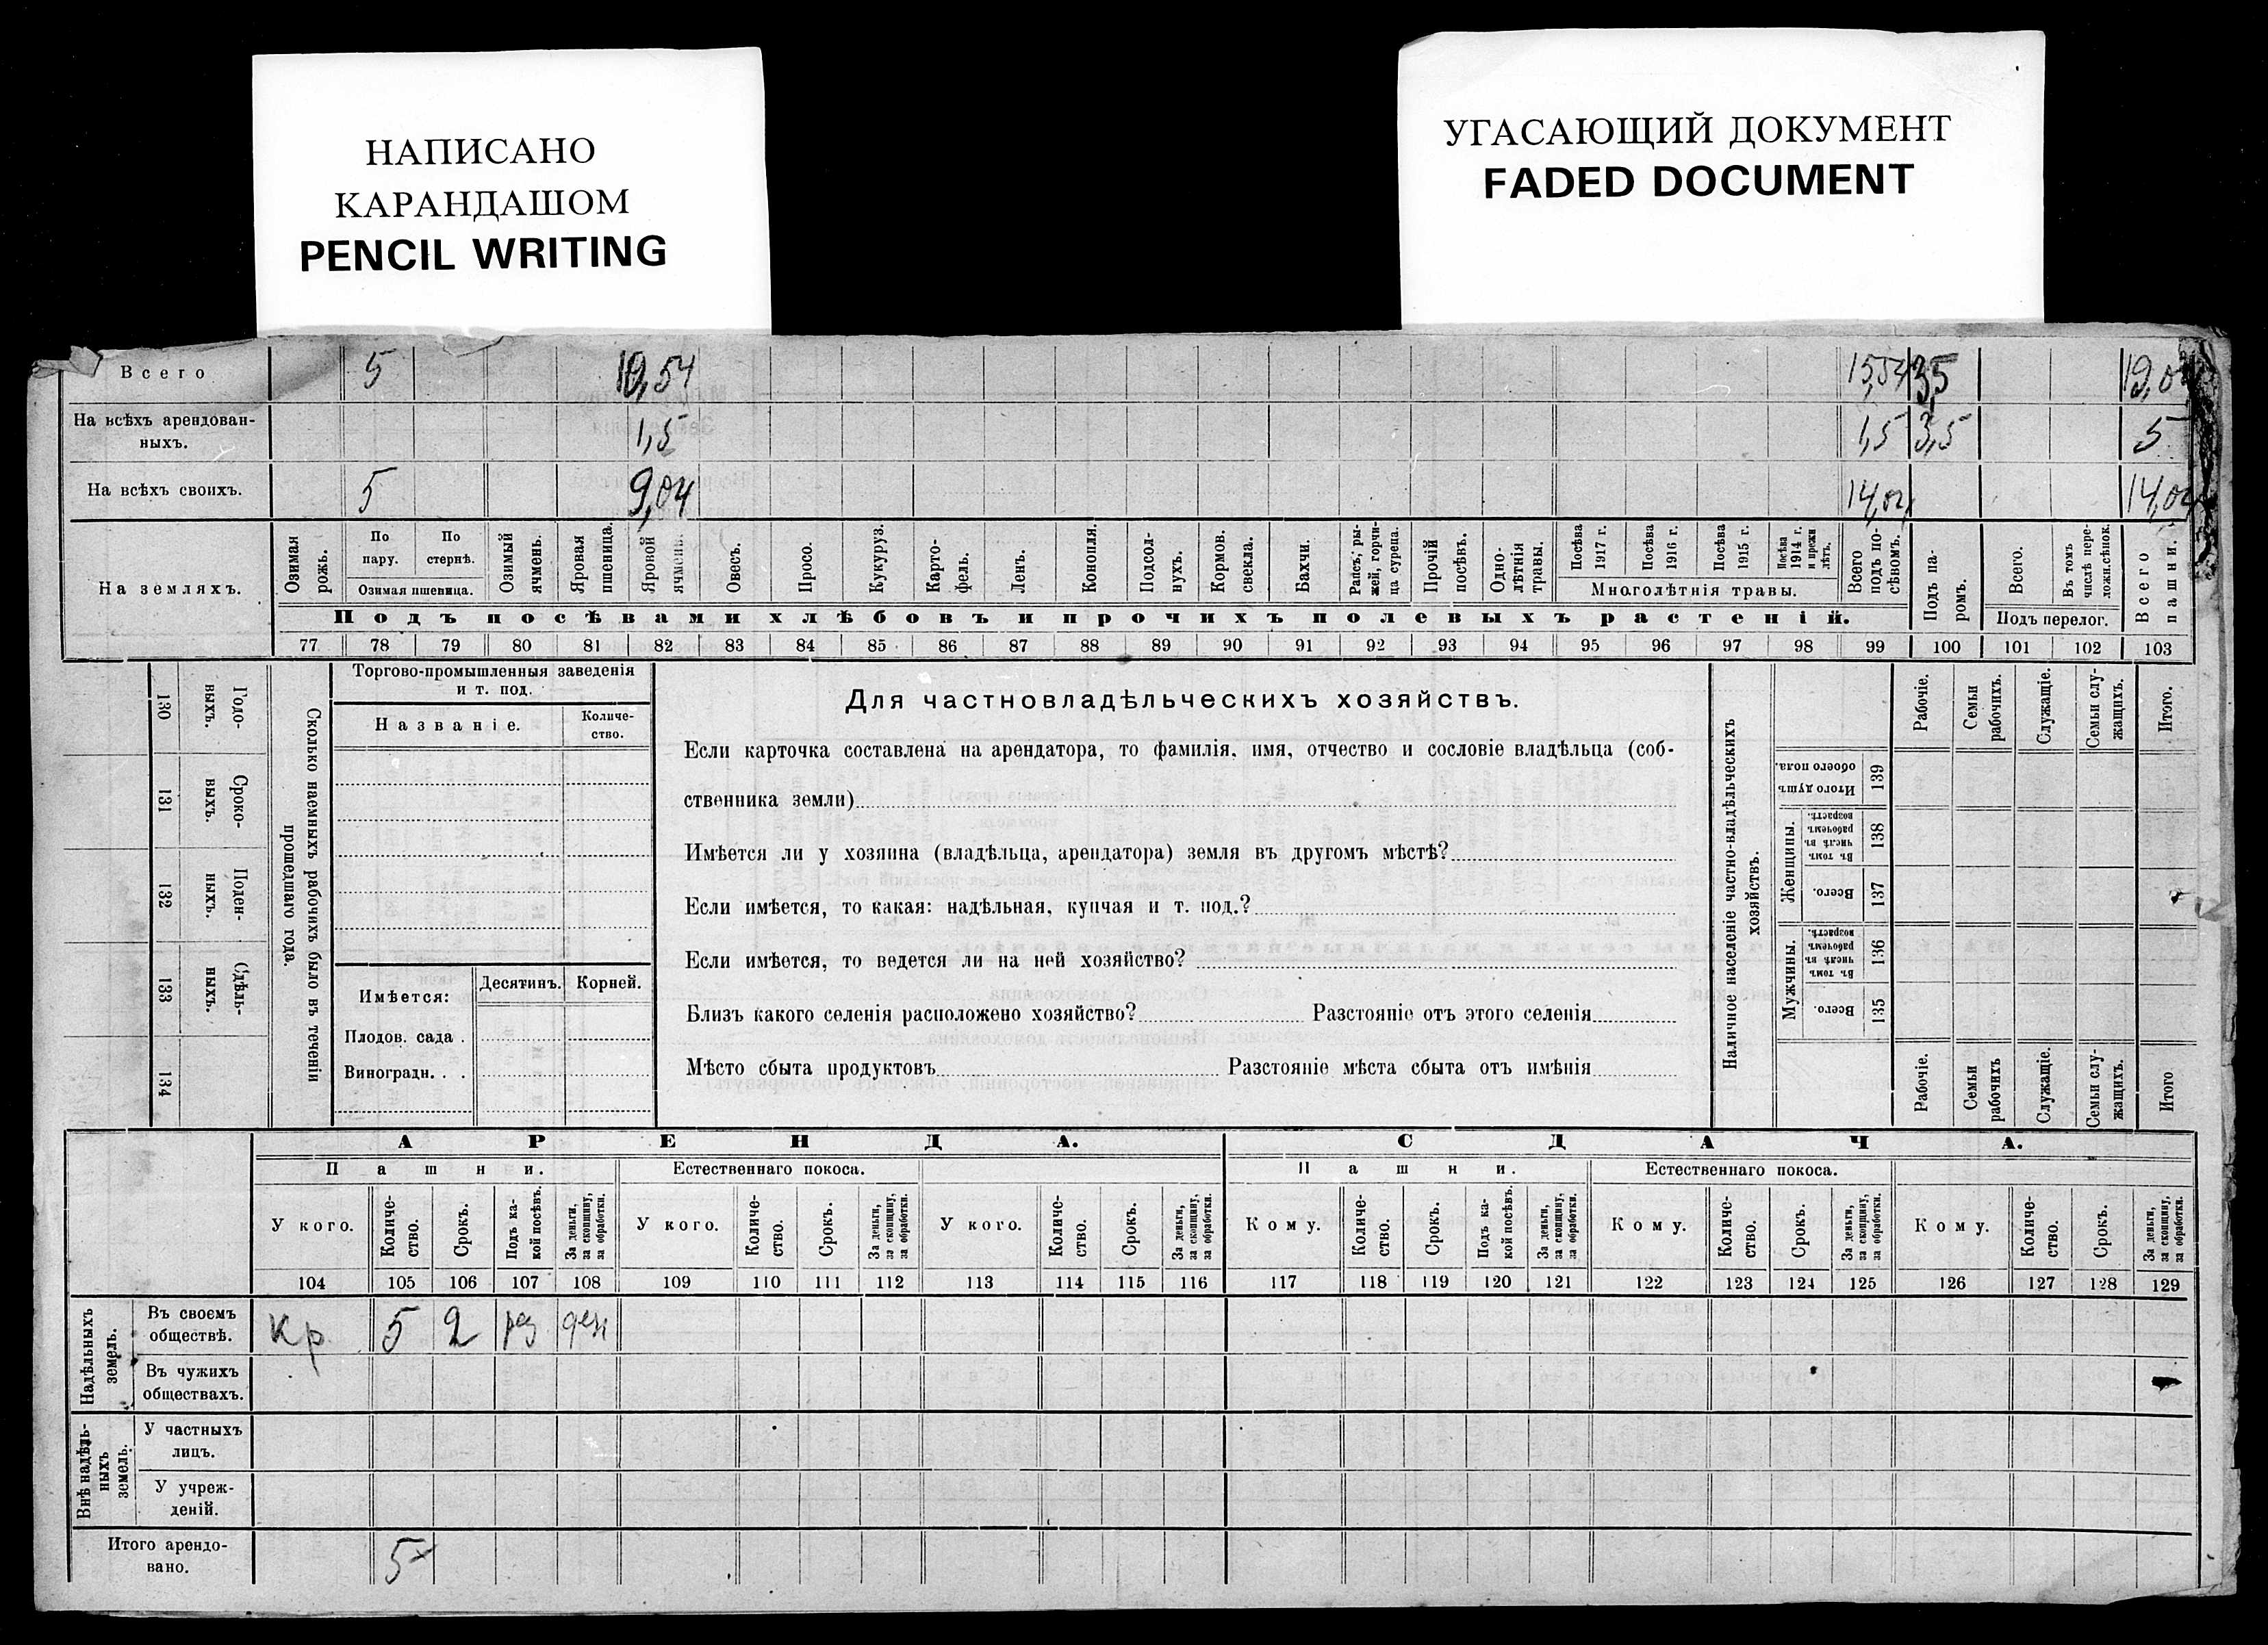 НАПИСАНО
КАРАНДАШОМ
PENCIL WRITING
УГАСАЮЩИЙ ДОКУМЕНТ
FADED DOCUMENT
Всего 5 10,54 15,54 3,5 19,04
На всѣхъ арендован-
ныхъ. 1,5 1,5 3,5 5
На всѣхъ своихъ. 5 9,04 14,04 14,04
На земляхъ.
Озимая рожь.
По пару.
По стернѣ.
Озимая пшевица.
Озимый ячмень.
Яровая пшеница.
Яровой ячмень.
Овесъ.
Просо.
Кукуруз.
Карто-
фель.
Ленъ.
Конопля.
Подсол-
нухъ.
Кормов.
свекла.
Бахчи.
Рапсъ, ры-
жей, горчи-
ца сурепа.
Прочій
посѣвъ.
Одно-
лѣтнія
травы.
Посѣва
1917 г.
Посѣва
1916 г.
Посѣва
1915 г.
Посѣва
1914 г.
и прежн
лѣтъ.
Многолѣтнія травы.
Всего
подъ по-
сѣвомъ.
Подъ па-
ромъ.
Всего.
Въ томъ
числѣ пере-
ложн.сѣнок.
Подъ перелог.
Всего
пашни.
Подъ посѣвами хлѣбовъ и прочихъ полевыхъ растеній.
77 78 79 80 81 82 83 84 85 86 87 88 89 90 91 92 93 94 95 96 97 98 99 100 101 102 103
130 Годо-
выхъ.
131 Сроко-
ныхъ.
132 Поден-
ныхъ.
133 Сдѣль-
ныхъ.
134
Сколько наемныхъ рабочихъ было въ теченіи
прошедшаго года.
Торгово-промышленныя заведенія
и т. под.
Названіе.
Количе-
ство.
Имѣется:
Десятинъ.
Корней.
Плодов. сада .
Виноградн. . .
Для частновладѣльческихъ хозяйствъ.
Если карточка составлена на арендатора, то фамилія, имя, отчество и сословіе владѣльца (соб-
ственника земли)
Имѣется ли у хозяина (владѣльца, арендатора) земля въ другомъ мѣстѣ?
Если имѣется, то какая: надѣльная, купчая и т. под.?
Если имѣется, то ведется ли на ней хозяйство?
Близъ какого селенія расположено хозяйство? Разстояніе отъ этого селенія
Мѣсто сбыта продуктовъ Разстояніе мѣста сбыта отъ имѣнія
Наличное населеніе частно-владѣльческихъ
хозяйствъ.
Рабочіе.
Семьи
рабочихъ.
Служащіе.
Семьи слу-
жащихъ.
Итого.
Итого душъ
обоего пола.
139
Женщины.
Въ томъ
числѣ въ
рабочемъ
возрастѣ.
138
Всего.
137
Мужчины.
Въ томъ
числѣ въ
рабочемъ
возрастѣ.
136
Всего.
135
Рабочіе.
Семьи
рабочихъ
Служащіе.
Семьи слу-
жащихъ.
Итого
АРЕНДА.
СДАЧА.
Пашни.
Естественнаго покоса.
Пашни.
Естественнаго покоса.
У кого.
Количе-
ство.
Срокъ.
Подъ ка-
кой посѣвъ.
За деньги,
за скопщину,
за обработки.
У кого.
Количе-
ство.
Срокъ.
За деньги,
за скопщину,
за обработки.
У кого.
Количе-
ство.
Срокъ.
За деньги,
за скопщину,
за обработки.
Кому.
Количе-
ство.
Срокъ.
Подъ ка-
кой посѣвъ.
За деньги,
за скопщину,
за обработки.
Кому.
Количе-
ство.
Срокъ.
За деньги,
за скопщину,
за обработки.
Кому.
Количе-
ство.
Срокъ.
За деньги,
за скопщину,
за обработки.
104 105 106 107 108 109 110 111 112 113 114 115 116 117 118 119 120 121 122 123 124 125 126 127 128 129
Надѣльныхъ
земель.
Въ своемъ
обществѣ. кр 5 2 раз ден
Въ чужихъ
обществахъ.
Внѣ надѣль-
ныхъ
земель.
У частныхъ
лицъ.
У учреж-
деній.
Итого арендо-
вано. 5